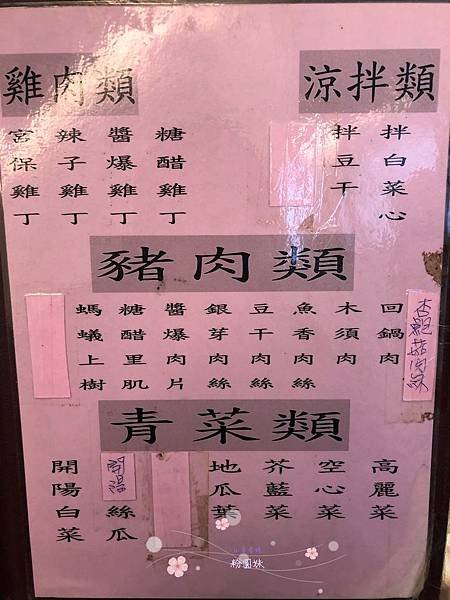 涼拌類
拌白菜心
拌豆干
雞肉類
糖醋雞丁
醬爆雞丁
辣子雞丁
宮保雞丁
豬肉類
杏鮑菇肉絲
回鍋肉
木須肉
魚香肉絲
豆干肉絲
銀芽肉絲
醬爆肉片
糖醋里肌
螞蟻上樹
青菜類
高麗菜
空心菜
芥藍菜
地瓜葉
開陽絲瓜
開陽白菜
粉圓妹